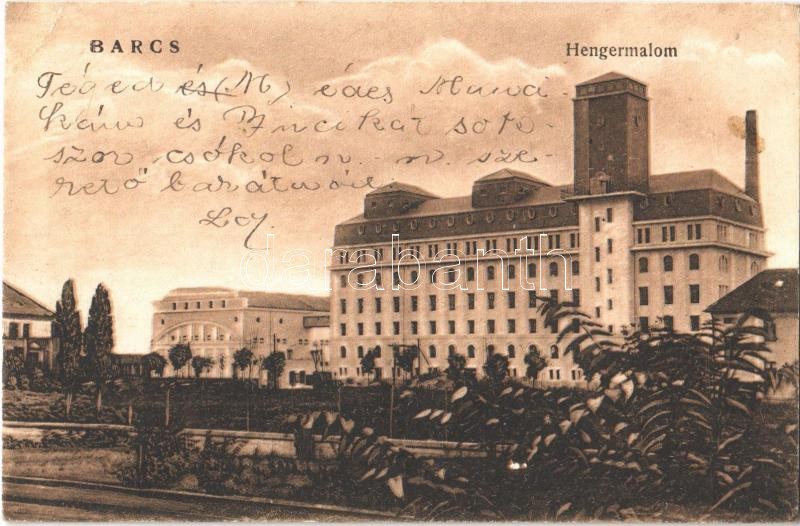 BARCS
Hengermalom
Téged és (M) édes Muci-
kám és Bucikát sok-
szor csókol n. n. sze-
rető barátnőd
darabanth